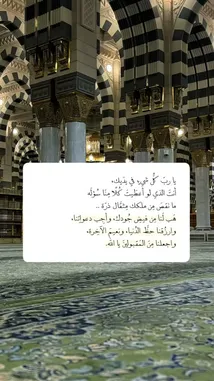 يا ربّ كُلُّ شيءٍ في يديك،
أنتَ الذي لو أعطيتَ كُلًّا مِنّا سُؤلَه
ما نقصَ مِن ملكك مِثقال ذرّة ..
هَب لَنا مِن فيضِ جُودك، وأجِب دعواتِنا،
وارزُقنا حظَّ الدُّنيا، ونَعيمَ الآخِرة،
واجعلنا مِنَ المَقبولين يا الله.